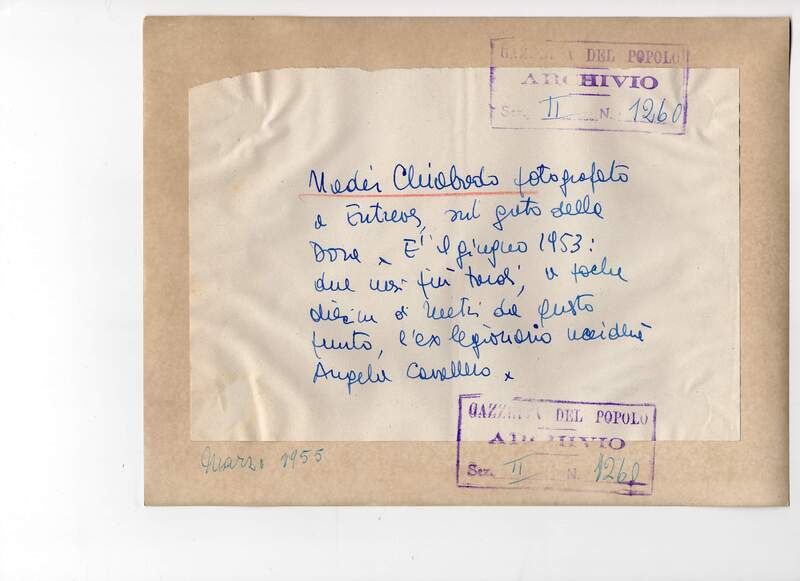 GAZZETTA DEL POPOLO
ARCHIVIO
Sez. II N. 1260
Nadir Chiabodo fotografato
a Entreves, sul greto della
Dora x E' il giugno 1953:
due mesi più tardi, a poche
diecine di metri da questo
punto, l'ex legionario ucciderà
Angela Cavallero x
GAZZETTA DEL POPOLO
ARCHIVIO
Sez. II N. 1260
Marzo 1955